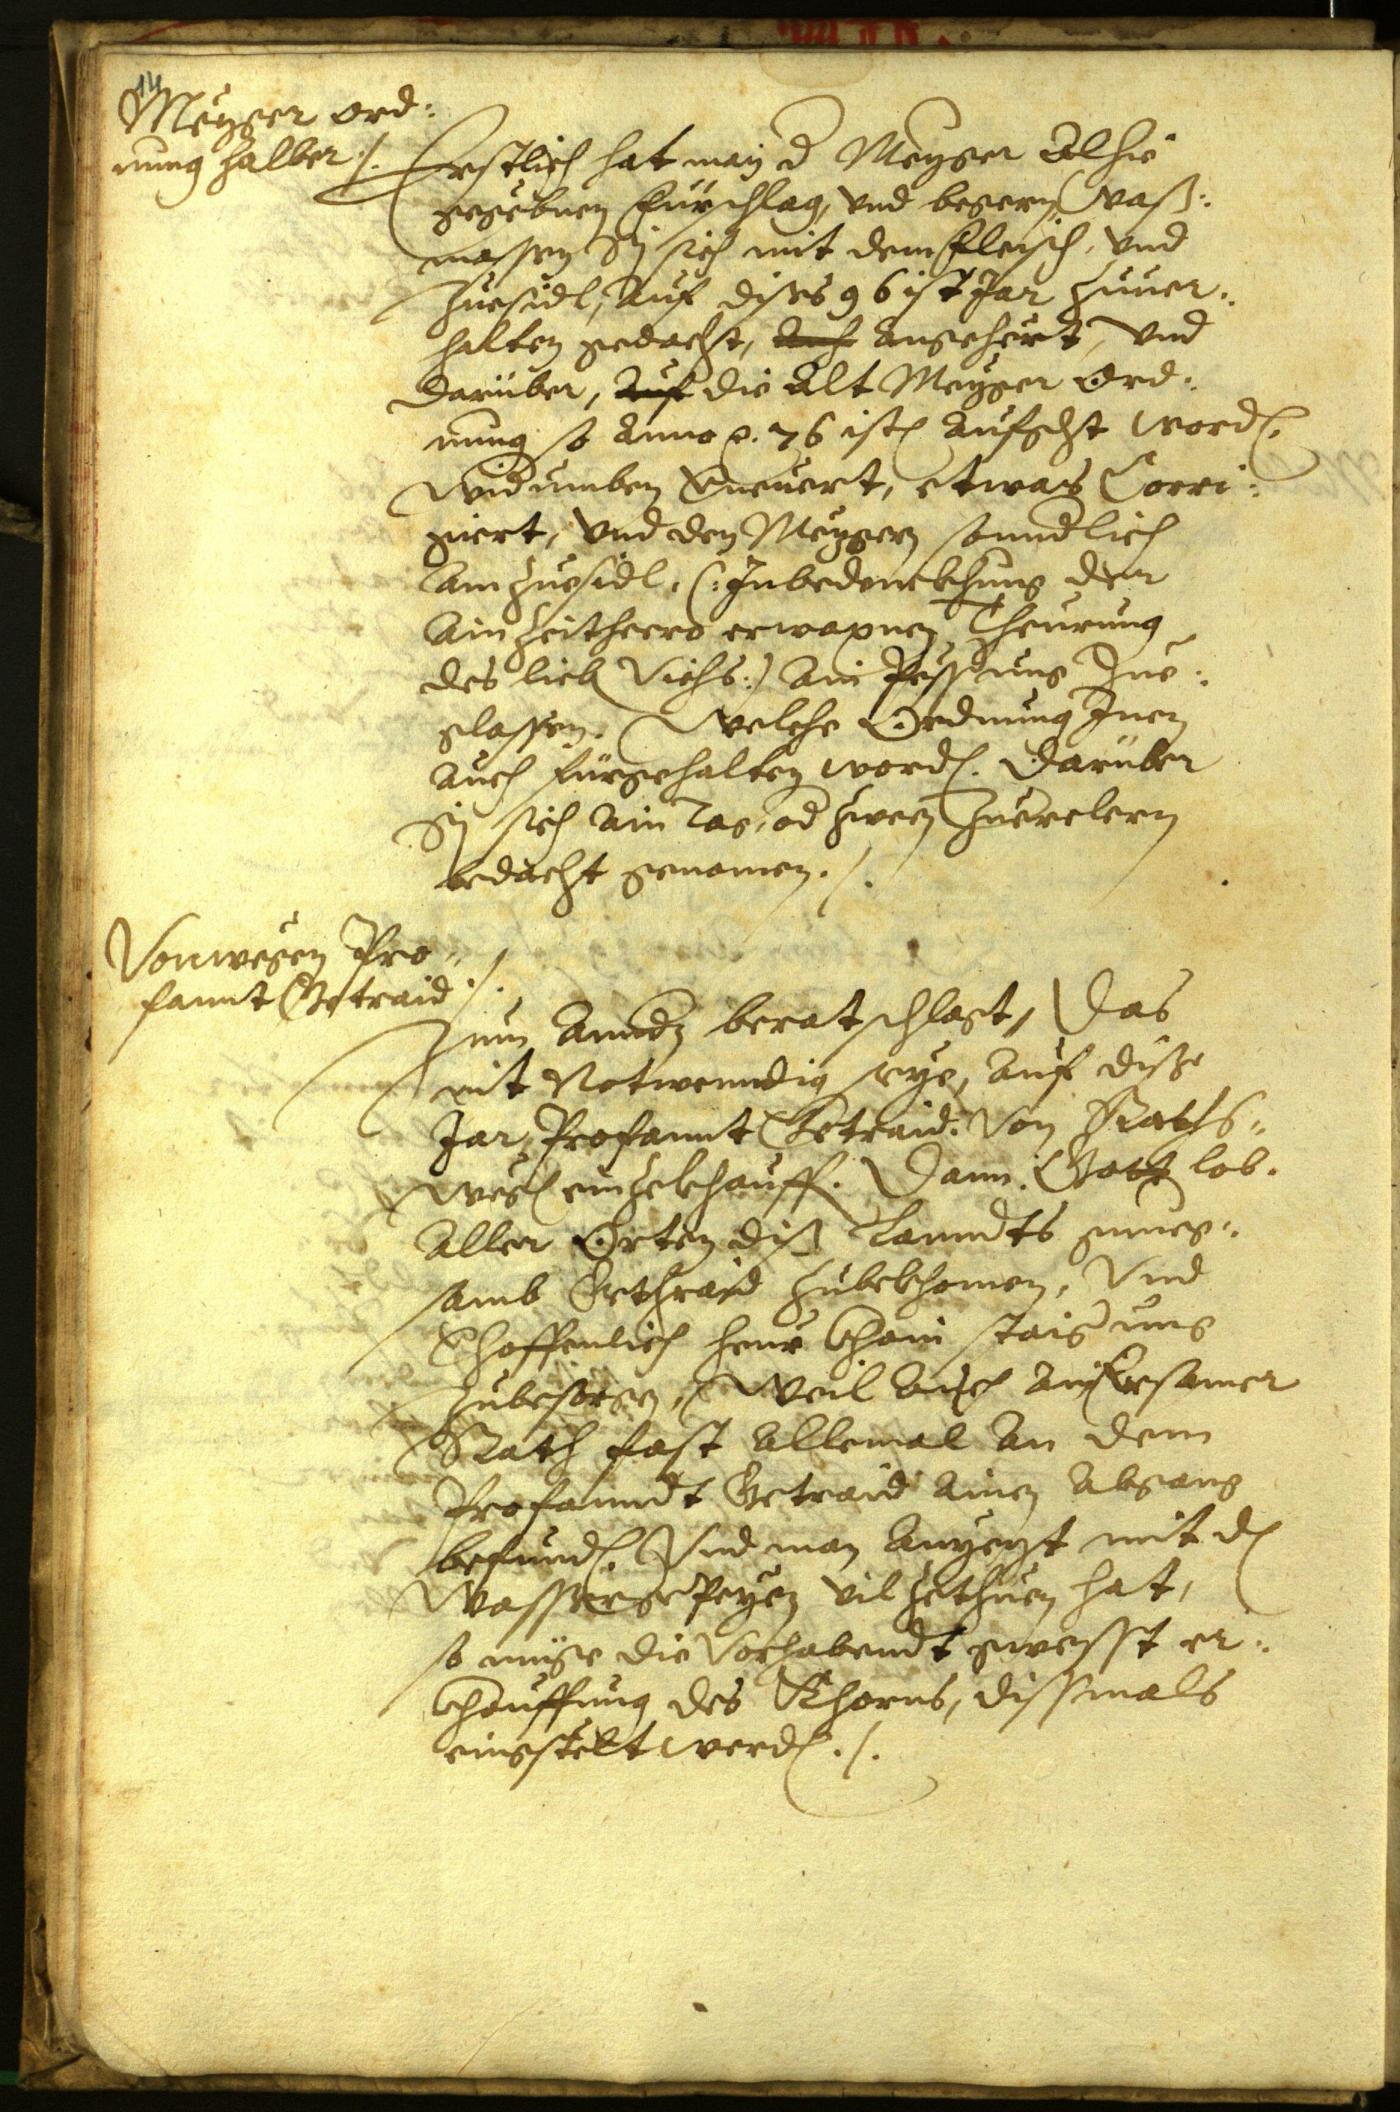 14
Mezger ord:
nung halber ./.
Erstlich hat man d Mezger Alhie
gegebnen Fürschlag, vnd begern, Waß:
massen Sy sich mit dem Fleisch, vnd
Zuesidl, Auf dises 96 ist Jar zuuer:
halten gedacht, auch angehört, vnd
darüber, auf die Alt Mezger Ord:
nung so Anno e. 76 ist Aufgehst word.
Widumben Erneuert, etwas Corri:
giert, vnd den Mezgern sonndlich
Am Zuesidl, (: In bedenckhung der
Ain Zeitheero erwaxnen Theurung
des lieb Vichs:) Ain Pesserung Zue:
glassen. Welche Ordnung Inen
Auch fürgehalten word. Darüber
Sy sich Ain Tag, od zween Zuerclern
bedacht genomen ./.
Vonwegen Pro:
fannt Getraid ./.
Zum Anndn beratschlagt, Das
nit Notwenndig seye, Auf dise
Jar, Profannt Getraid. Von Raths:
weg einzekhauff. Dann. Gott lob.
Aller Orten diß Lanndts gnueg:
samb Gethraid Zubekhomen, Vnd
Ehoffenlich heur khain staigung
Zubesorgen, Weil Auch ain Ersamer
Rath fast Allemal An dem
Profanndt Getraid Ainen Abgang
befund. Vnd man Anyezt mit d
Wassergepeyen vil zethuen hat,
so müge die Vorhabendt gwesst er:
khauffung des Khorns, dissmals
eingstelt werd ./.